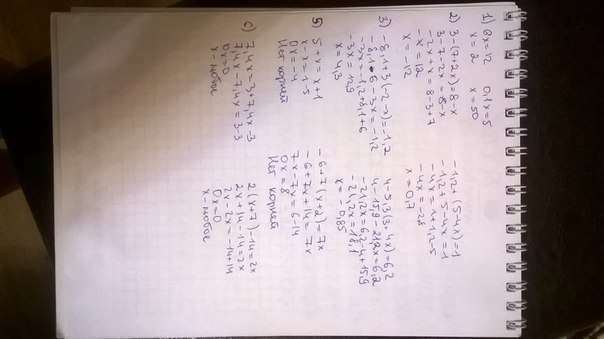 1) 6x=12
x=2
0,1x=5
x=50
2) 3-(7+2x)=8-x
3-7-2x=8-x
-2x+x=8-3+7
-x=12
x=-12
-1,2+(5-4x)=1
-1,2+5-4x=1
-4x=1+1,2-5
-4x=-2,8
x=0,7
3) -8,1+3(-2-x)=-1,2
-8,1-6-3x=-1,2
-3x=-1,2+8,1+6
-3x=12,9
x=4,3
4-5,3(3+4x)=6,2
4-15,9-21,2x=6,2
-21,2x=6,2-4+15,9
-21,2x=18,1
x=0,85
5-x=x+1
x-x=1-5
0x=-4
Нет корней
-6+7(x+2)=7x
-6+7x+14=7x
7x-7x=6-14
0x=8
Нет корней
с) 7,4x-3=7,4x-3
7,4x-7,4x=3-3
0x=0
x-любое
2(x+7)-14=2x
2x+14-14=2x
2x-2x=-14+14
0x=0
x-любое